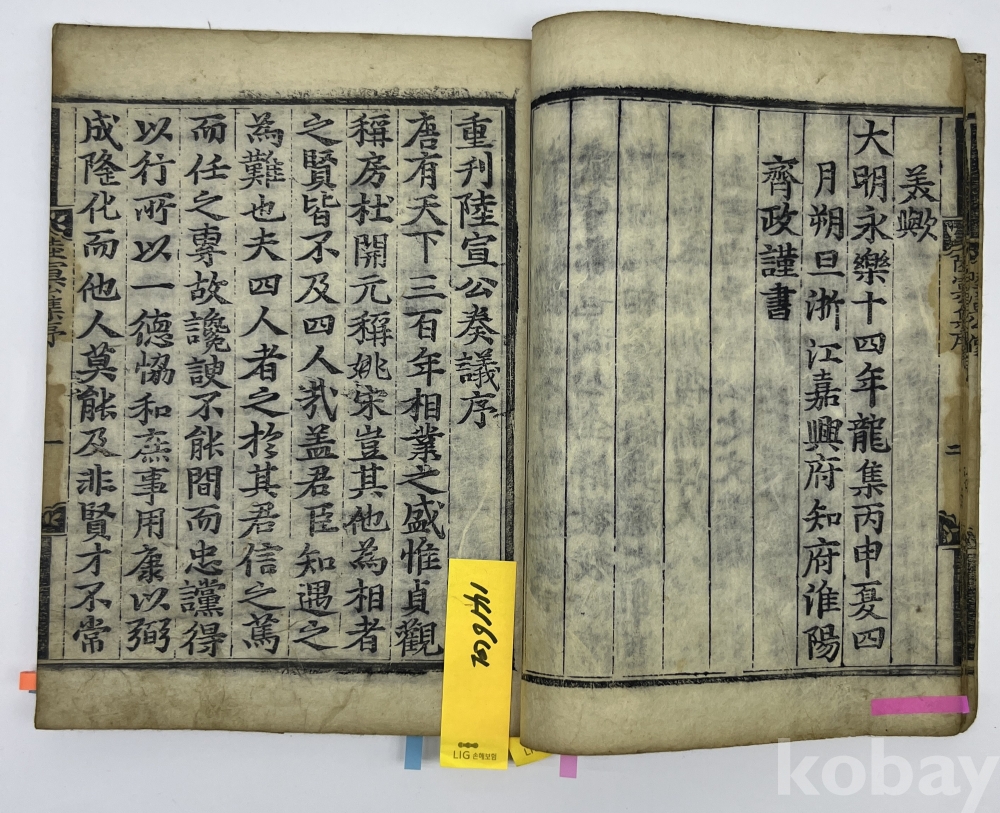 美歟
大明永樂十四年龍集丙申夏四
月朔旦浙江嘉興府知府淮陽
齊政謹書
二
重刊陸宣公奏議序
唐有天下三百年相業之盛惟貞觀
稱房杜開元稱姚宋豈其他為相者
之賢皆不及四人㢤盖君臣知遇之
為難也夫四人者之於其君信之篤
而任之專故讒諛不能間而忠讜得
以行所以一德恊和庶事用康以弼
成隆化而他人莫能及非賢才不常
一
14766a
LIG 손해보험
LI
kobay